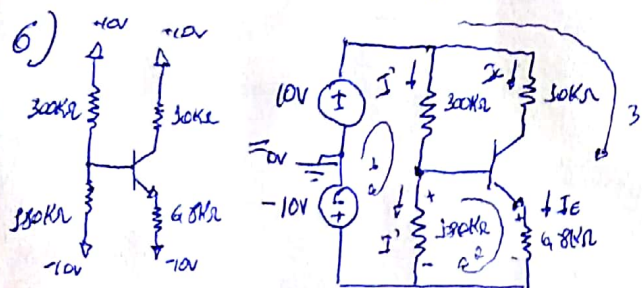 6)
+10V
+10V
300KΩ
10KΩ
180KΩ
6.8KΩ
-10V
-10V
10V
0V
-10V
I'
300KΩ
10KΩ
3
1
I'
180KΩ
2
IE
6.8KΩ
+
-
+
-